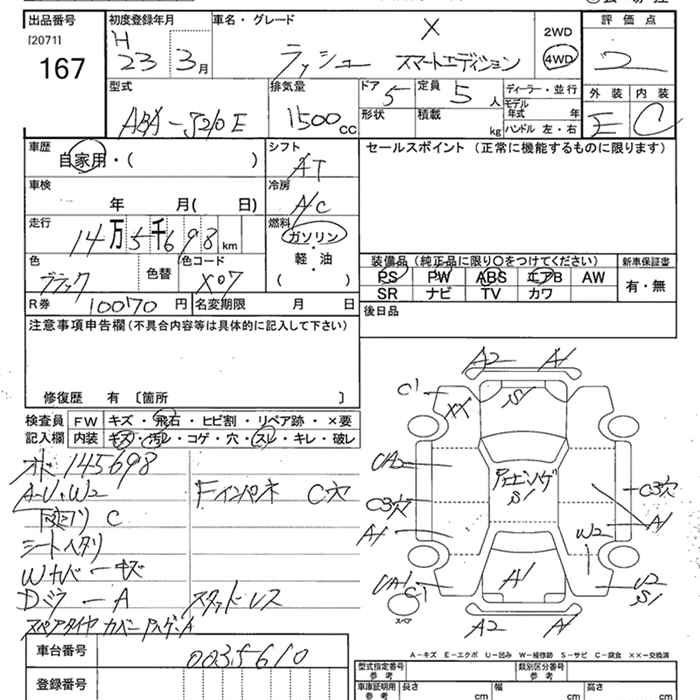 出品番号 初度登録年月 車名・グレード 評価点
[2071]
167
H 23 3月
X
ラッシュ スマートエディション
2WD
4WD
2
外装 内装
E C
型式 排気量 ドア 定員 ディーラー・並行
ABA-J210E 1500cc 5 5人
形状 積載 kg
モデル年式 年
ハンドル 左・右
車歴 シフト セールスポイント (正常に機能するものに限ります)
自家用・( )
AT
車検 冷房
年 月( 日) A/C
走行 燃料
14万5千698km
ガソリン
・
軽・油
( )
色 色替 色コード
ブラック X07
装備品(純正品に限り○をつけてください) 新車保証書
PS PW ABS エアB AW
SR ナビ TV カワ
有・無
R券 10070円 名変期限 月 日
後日品
注意事項申告欄(不具合内容等は具体的に記入して下さい)
修復歴 有 〔箇所 〕
検査員 FW キズ・飛石・ヒビ割・リペア跡・×要
記入欄 内装 キズ・汚レ・コゲ・穴・スレ・キレ・破レ
145698
A-U・W2
Fインパネ C穴
C
シートヘタリ
Wカバーキズ
A
スタッドレス
スペアタイヤカバー
A2 A1
C1 XX S1
C3穴 C3穴
A1 A1
S1
W2
A1
C1 S1
スペア
A2 A1
A-キズ E-エクボ U-凹み W-補修跡 S-サビ C-腐食 ××-交換済
車台番号 0035610
登録番号
型式指定番号 参考 類別区分番号 参考
車庫証明用 参考 長さ cm 幅 cm 高さ cm